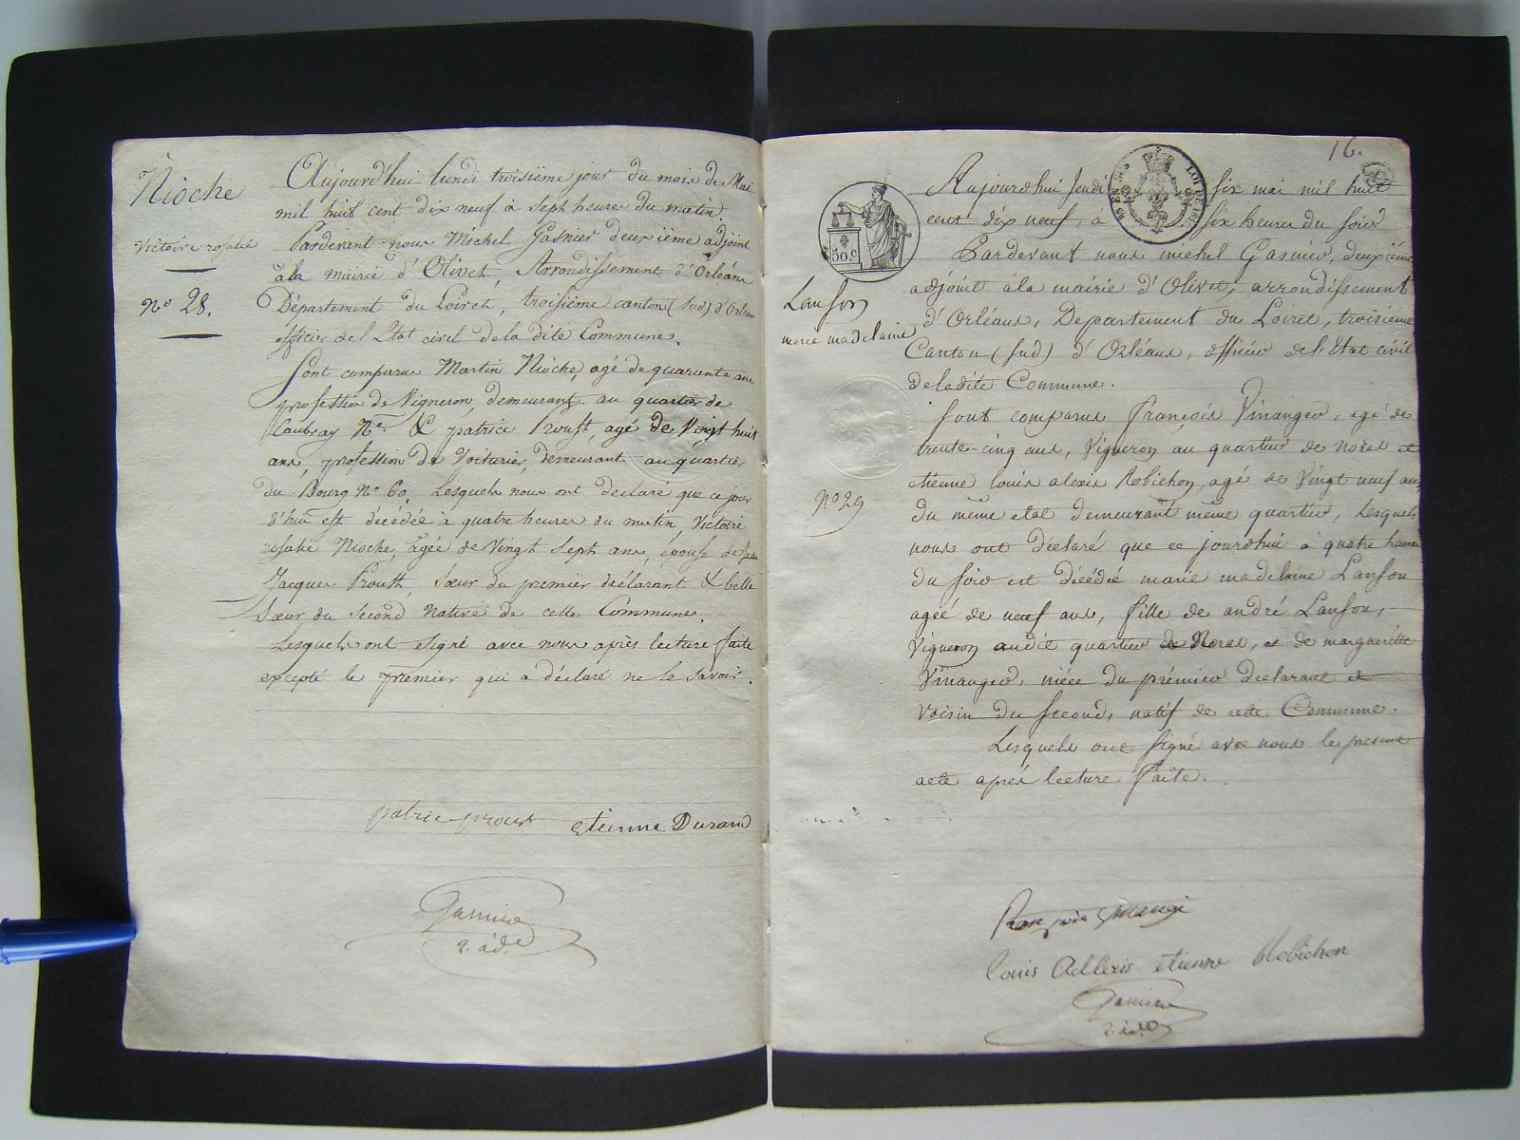 Nioche
Victoire rosalie
N° 28.
Aujourd'hui lundi troisième jour du mois de Mai
mil huit cent dix neuf à sept heures du matin.
Pardevant nous Michel Gasnier deuxième adjoint
à la mairie d'Olivet, Arrondissement d'Orléans
Département du Loiret, troisième canton (sud) d'Orléans
officier de l'Etat civil de la dite Commune.
Sont comparus Martin Nioche, agé de quarante ans
profession de Vigneron, demeurant au quartier de
N° & patrice Proust, agé de Vingt huit
ans, profession de Voiturier, demeurant au quartier
du Bourg N° 60. Lesquels nous ont declaré que ce jour
d'hui est décédée à quatre heures du matin, Victoire
rosalie Nioche, agée de Vingt sept ans, épouse de
Jacques Proust, sœur du premier déclarant & belle
sœur du second native de cette Commune.
Lesquels ont signé avec nous après lecture faite
excepté le premier qui a déclaré ne le savoir.
patrice proust etienne Durand
Gasnier
2. ad.
16.
50 c
Lanson
marie madelaine
N° 29
Aujourdhui jeudi six mai mil huit
cent dix neuf, à six heures du soir
Pardevant nous michel Gasnier, deuxième
adjoint à la mairie d'Olivet, arrondissement
d'Orléans, Departement du Loiret, troisième
Canton (sud) d'Orléans, officier de l'Etat civil
de ladite Commune.
Sont comparus françois Vinauger, agé de
trente-cinq ans, Vigneron au quartier de Noras et
etienne louis alexis Robichon, agé de Vingt neuf ans
du même etat demeurant même quartier, Lesquels
nous ont déclaré que ce jourdhui à quatre heures
du soir est décédé marie madelaine Lanson
agée de neuf ans, fille de andré Lanson,
Vigneron audit quartier de Noras, et de margueritte
Vinauger, nièce du prémier declarant et
voisin du second, natif de cette Commune.
Lesquels ont signé avec nous le present
acte après lecture faite.
louis Allexis etienne Robichon
Gasnier
2. ad.